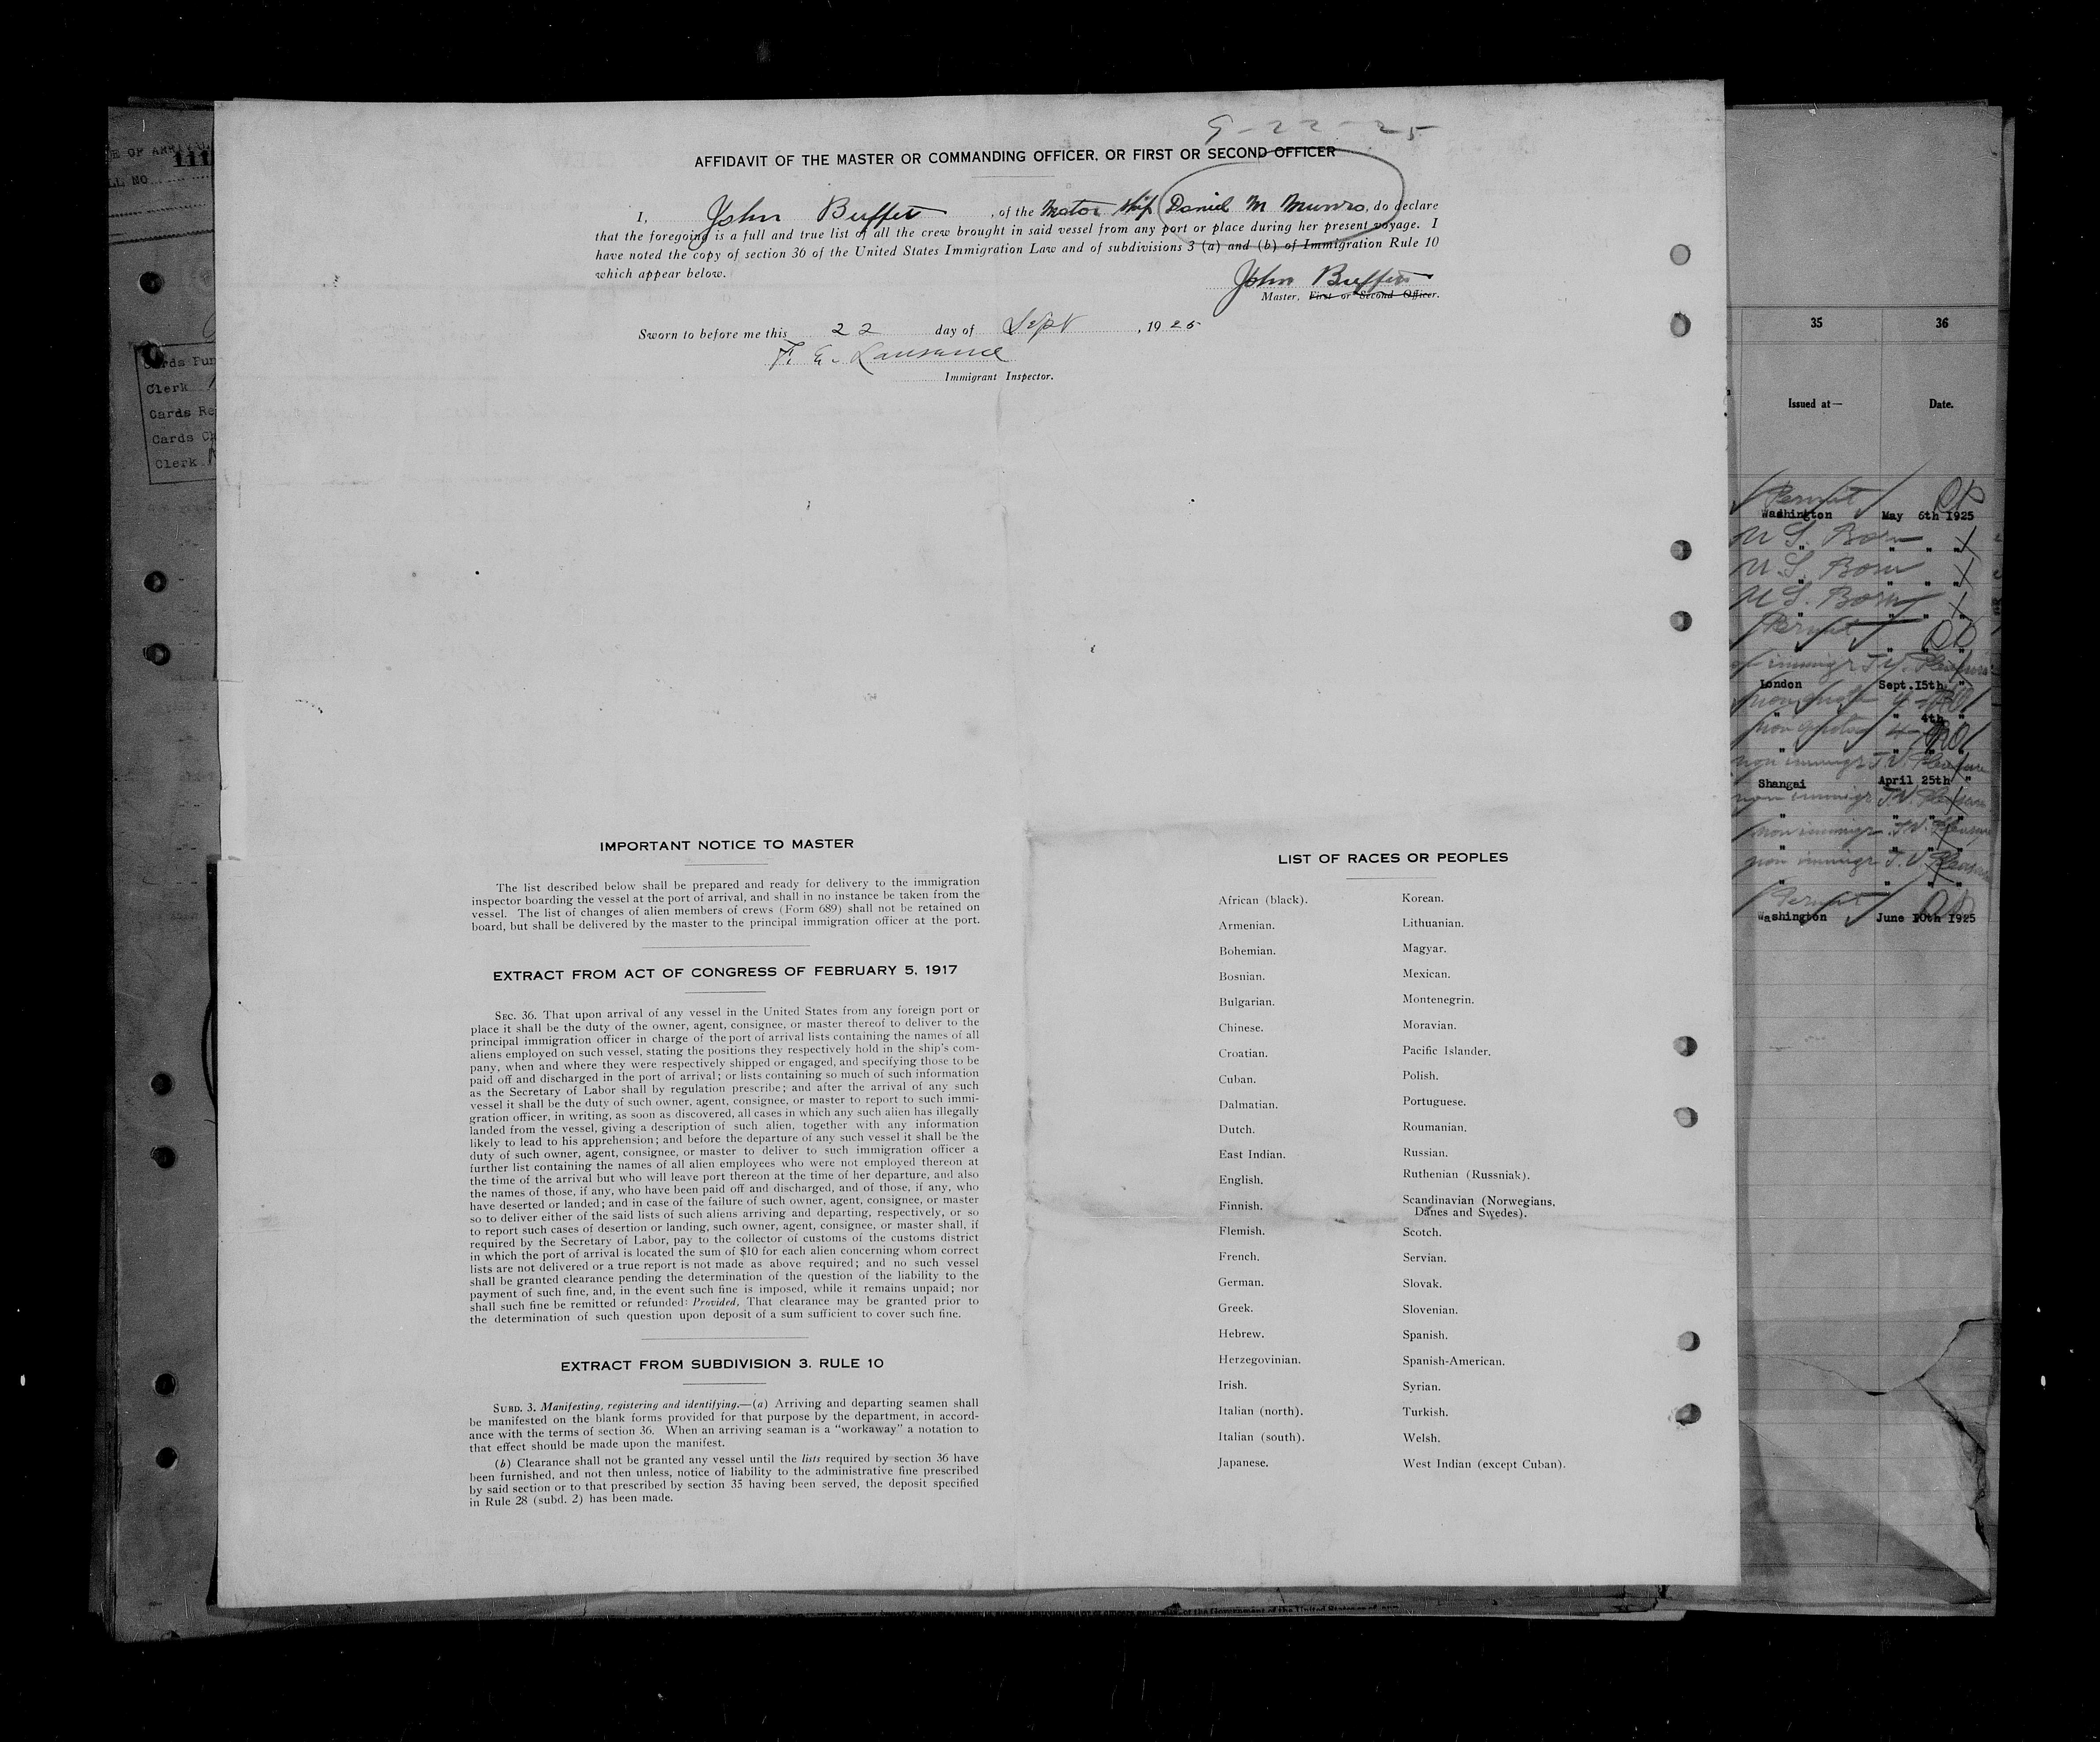 9-22-25
AFFIDAVIT OF THE MASTER OR COMMANDING OFFICER, OR FIRST OR SECOND OFFICER
I, John Buffet, of the Motor Ship Daniel M Munro, do declare
that the foregoing is a full and true list of all the crew brought in said vessel from any port or place during her present voyage. I
have noted the copy of section 36 of the United States Immigration Law and of subdivisions 3 (a) and (b) of Immigration Rule 10
which appear below.
John Buffett
Master, First or Second Officer.
Sworn to before me this 22 day of Sept, 1925
F. E.
Immigrant Inspector.
IMPORTANT NOTICE TO MASTER
The list described below shall be prepared and ready for delivery to the immigration
inspector boarding the vessel at the port of arrival, and shall in no instance be taken from the
vessel. The list of changes of alien members of crews (Form 689) shall not be retained on
board, but shall be delivered by the master to the principal immigration officer at the port.
EXTRACT FROM ACT OF CONGRESS OF FEBRUARY 5, 1917
SEC. 36. That upon arrival of any vessel in the United States from any foreign port or
place it shall be the duty of the owner, agent, consignee, or master thereof to deliver to the
principal immigration officer in charge of the port of arrival lists containing the names of all
aliens employed on such vessel, stating the positions they respectively hold in the ship's com-
pany, when and where they were respectively shipped or engaged, and specifying those to be
paid off and discharged in the port of arrival; or lists containing so much of such information
as the Secretary of Labor shall by regulation prescribe; and after the arrival of any such
vessel it shall be the duty of such owner, agent, consignee, or master to report to such immi-
gration officer, in writing, as soon as discovered, all cases in which any such alien has illegally
landed from the vessel, giving a description of such alien, together with any information
likely to lead to his apprehension; and before the departure of any such vessel it shall be the
duty of such owner, agent, consignee, or master to deliver to such immigration officer a
further list containing the names of all alien employees who were not employed thereon at
the time of the arrival but who will leave port thereon at the time of her departure, and also
the names of those, if any, who have been paid off and discharged, and of those, if any, who
have deserted or landed; and in case of the failure of such owner, agent, consignee, or master
so to deliver either of the said lists of such aliens arriving and departing, respectively, or so
to report such cases of desertion or landing, such owner, agent, consignee, or master shall, if
required by the Secretary of Labor, pay to the collector of customs of the customs district
in which the port of arrival is located the sum of $10 for each alien concerning whom correct
lists are not delivered or a true report is not made as above required; and no such vessel
shall be granted clearance pending the determination of the question of the liability to the
payment of such fine, and, in the event such fine is imposed, while it remains unpaid; nor
shall such fine be remitted or refunded: Provided, That clearance may be granted prior to
the determination of such question upon deposit of a sum sufficient to cover such fine.
EXTRACT FROM SUBDIVISION 3, RULE 10
SUBD. 3. Manifesting, registering and identifying.—(a) Arriving and departing seamen shall
be manifested on the blank forms provided for that purpose by the department, in accord-
ance with the terms of section 36. When an arriving seaman is a "workaway" a notation to
that effect should be made upon the manifest.
(b) Clearance shall not be granted any vessel until the lists required by section 36 have
been furnished, and not then unless, notice of liability to the administrative fine prescribed
by said section or to that prescribed by section 35 having been served, the deposit specified
in Rule 28 (subd. 2) has been made.
LIST OF RACES OR PEOPLES
African (black).
Armenian.
Bohemian.
Bosnian.
Bulgarian.
Chinese.
Croatian.
Cuban.
Dalmatian.
Dutch.
East Indian.
English.
Finnish.
Flemish.
French.
German.
Greek.
Hebrew.
Herzegovinian.
Irish.
Italian (north).
Italian (south).
Japanese.
Korean.
Lithuanian.
Magyar.
Mexican.
Montenegrin.
Moravian.
Pacific Islander.
Polish.
Portuguese.
Roumanian.
Russian.
Ruthenian (Russniak).
Scandinavian (Norwegians,
Danes and Swedes).
Scotch.
Servian.
Slovak.
Slovenian.
Spanish.
Spanish-American.
Syrian.
Turkish.
Welsh.
West Indian (except Cuban).
35 36
Issued at— Date.
Permit
Washington May 6th 1925
U S. Born " " "
U S. Born " " "
U S. Born " " "
Permit
London Sept. 15th "
non quota
" " 4th "
non quota
non immigr T.V. Pleasure
Shangai April 25th "
non immigr T.V. Pleasure
non immigr T.V. Pleasure
non immigr T.V. Pleasure
Permit
Washington June 10th 1925
Clerk
Cards
Cards
Clerk